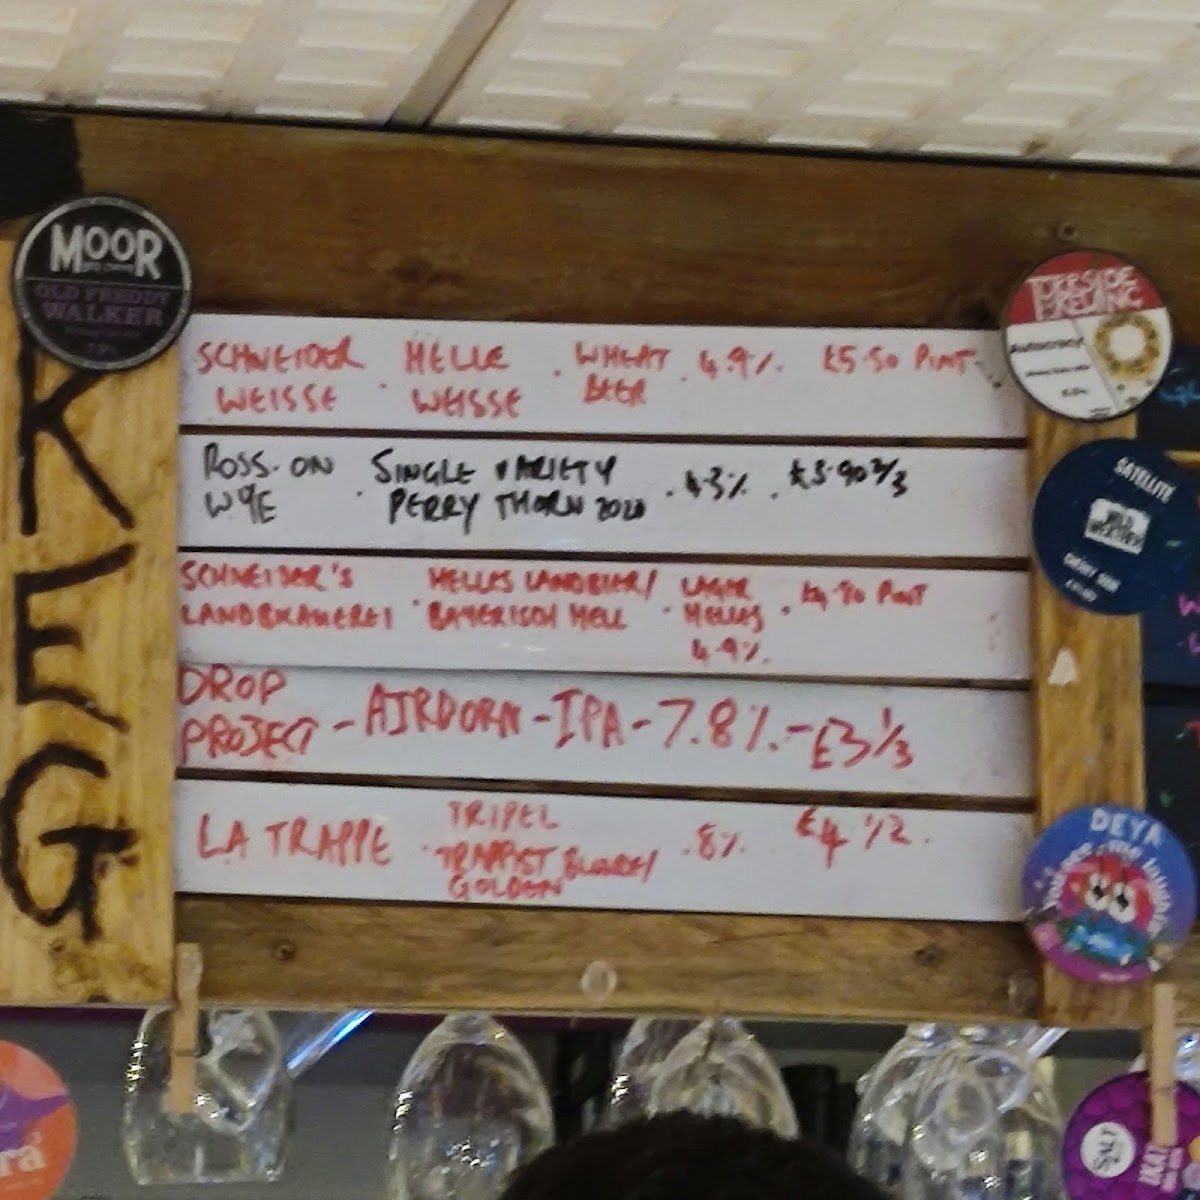 MOOR
OLD FREDDY
WALKER
KEG
SCHNEIDER WEISSE · HELLE WEISSE · WHEAT BEER · 4.9% £5.50 PINT
ROSS·ON WYE · SINGLE VARIETY PERRY THORN 2020 · 4.3% · £3.90 2/3
SCHNEIDER'S LANDBRAUEREI · HELLES LANDBIER/ BAYERISCH HELL · LAGER HELLES 4.9% · £4.80 PINT
DROP PROJECT - AIRDORN - IPA - 7.8% - £3 1/3
LA TRAPPE · TRIPEL TRAPPIST BLONDE/ GOLDEN · 8% £4 1/2.
Autocracy
SATELLITE
DEYA